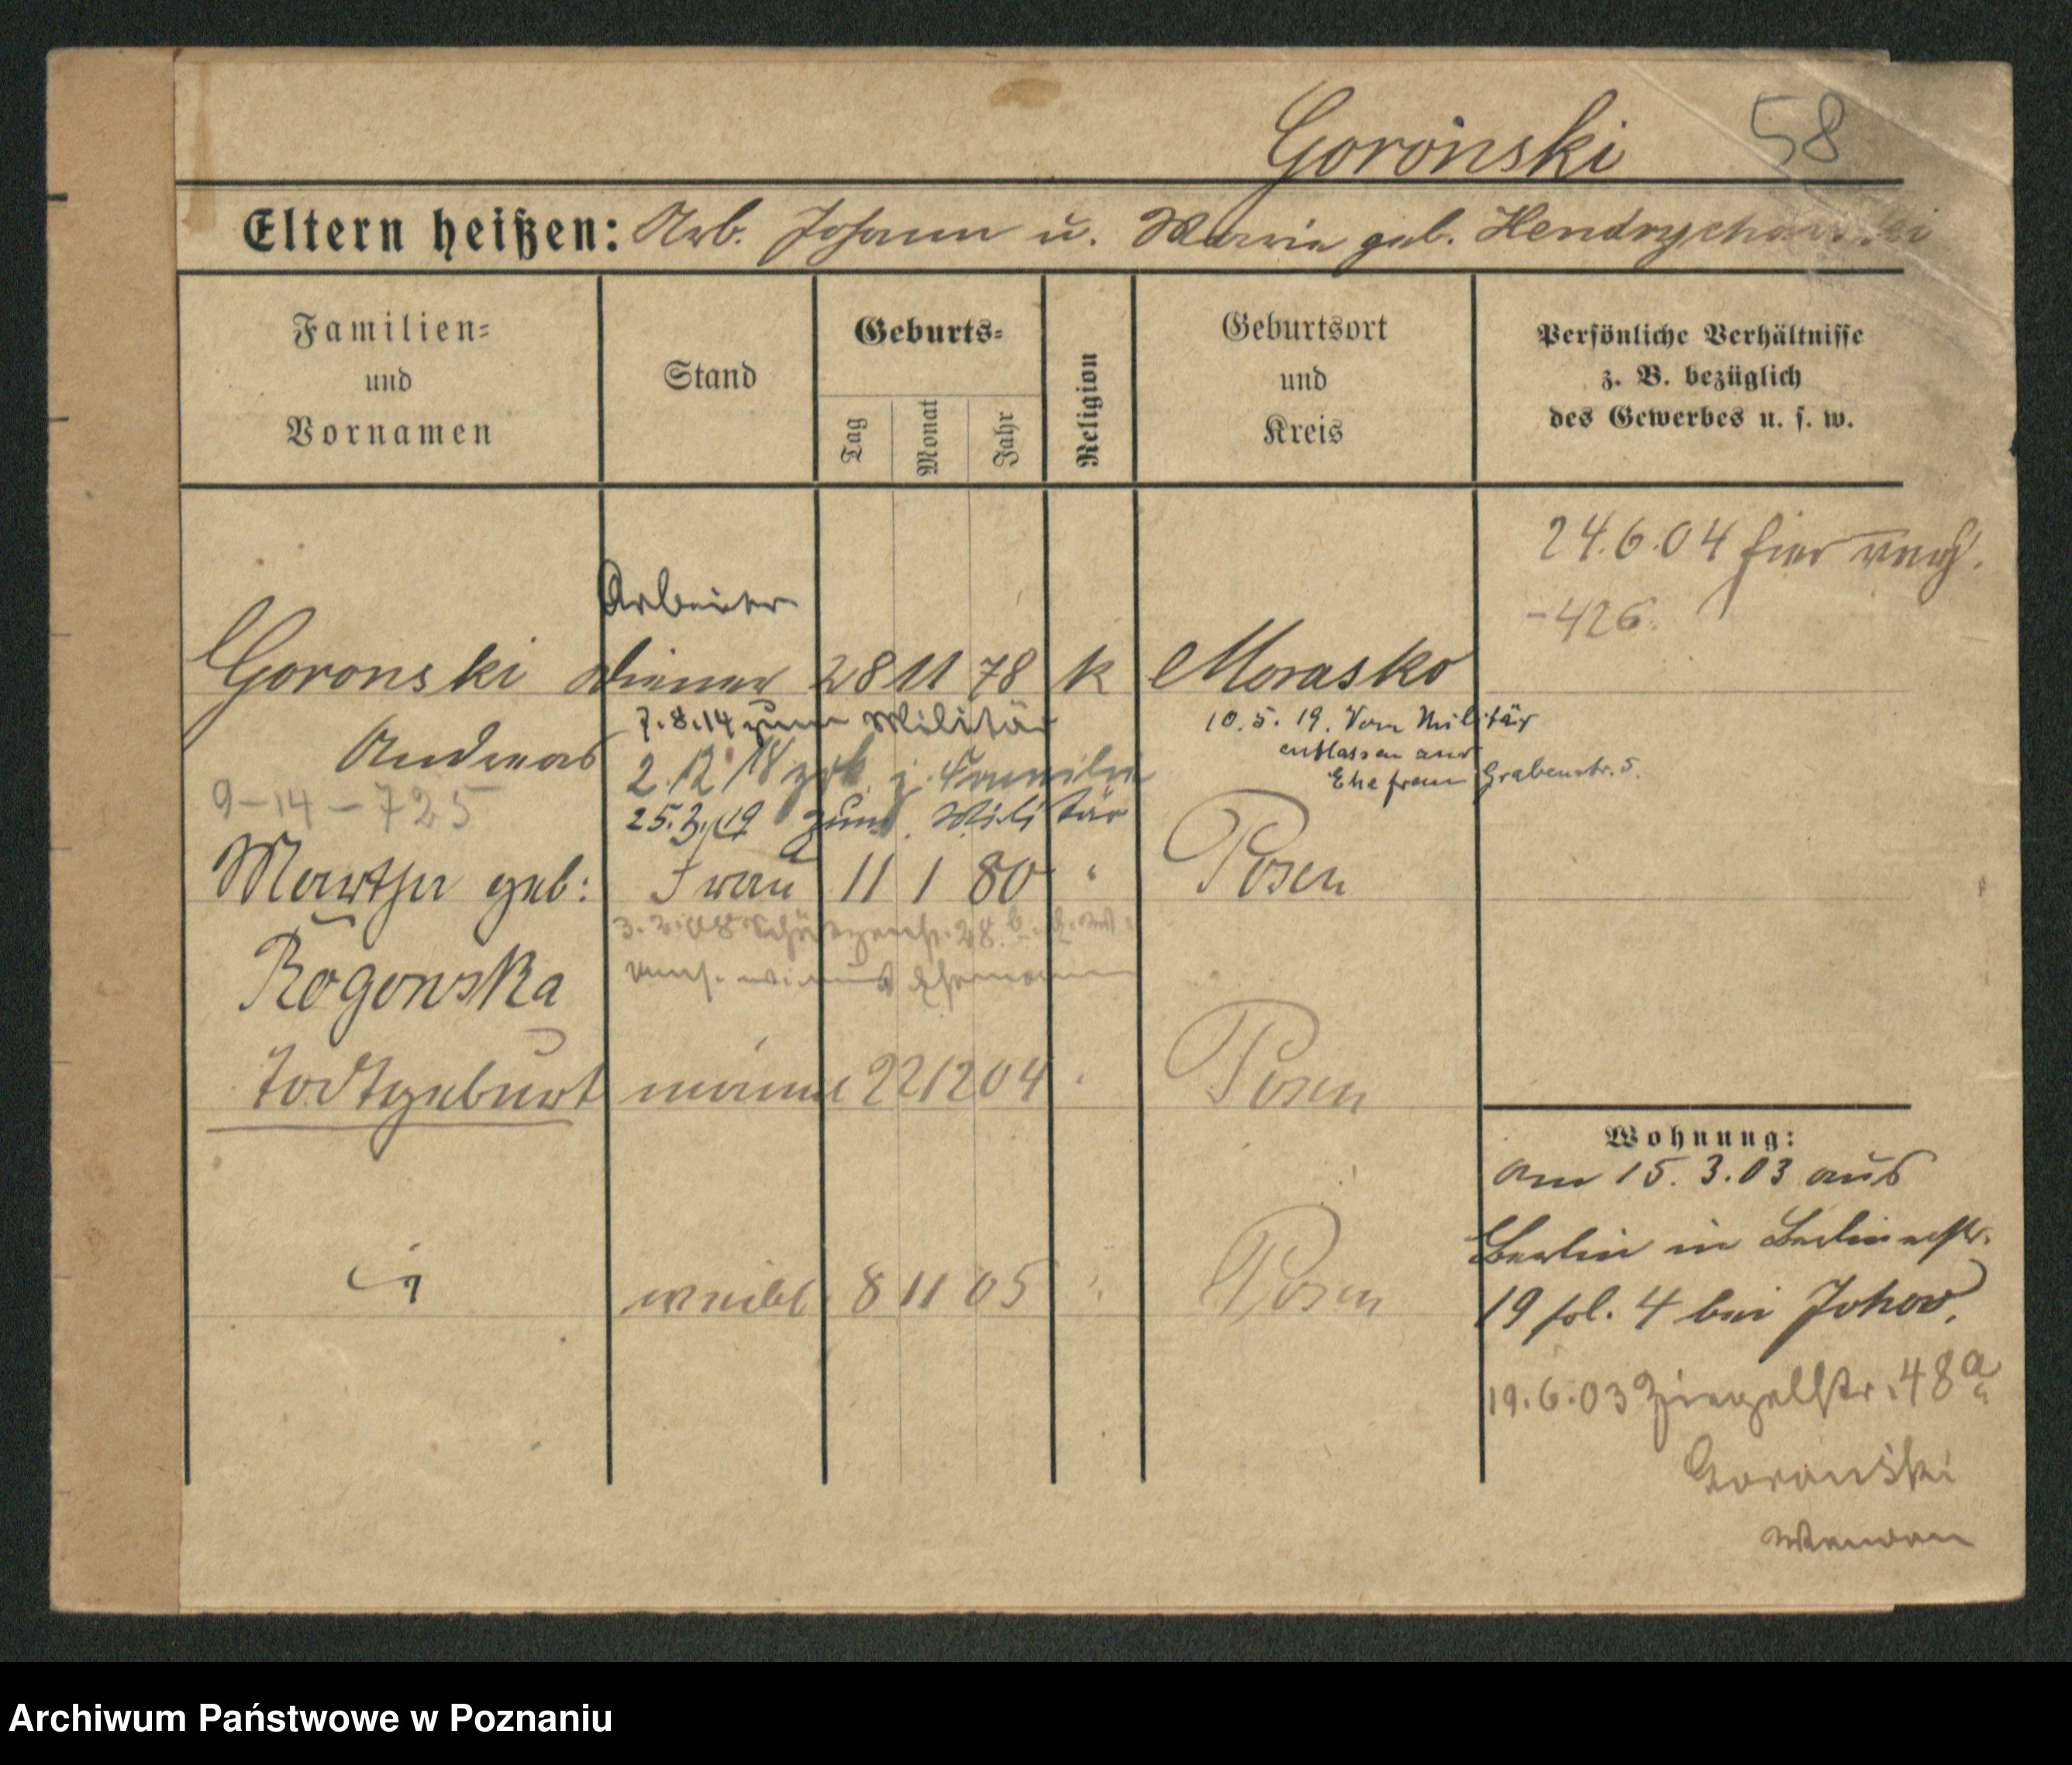 Goronski 58
Eltern heißen: Arb. Johann u. Maria geb.
Familien=
und
Vornamen
Stand
Geburts=
Tag
Monat
Jahr
Religion
Geburtsort
und
Kreis
Persönliche Verhältnisse
z. B. bezüglich
des Gewerbes u. s. w.
24.6.04 hier verh.
-426.
Arbeiter
Goronski Diener 28 11 78 k Morasko
Andreas
7.8.14 zum Militär
2.12.18 z. Familie
25.3.19 zum Militär
10.5.19. Vom Militär
entlassen und
Ehefrau Grabenstr. 5.
9-14-725
Martha geb: Frau 11 1 80 " Posen
Rogowska
3.2.08 28
Ehemann
Todtgeburt männl 22 12 04 " Posen
weibl. 8 11 05 " Posen
Wohnung:
am 15.3.03 aus
Berlin in Berlinerstr.
19 4 bei
19.6.03 Ziegelstr. 48a
Goronski